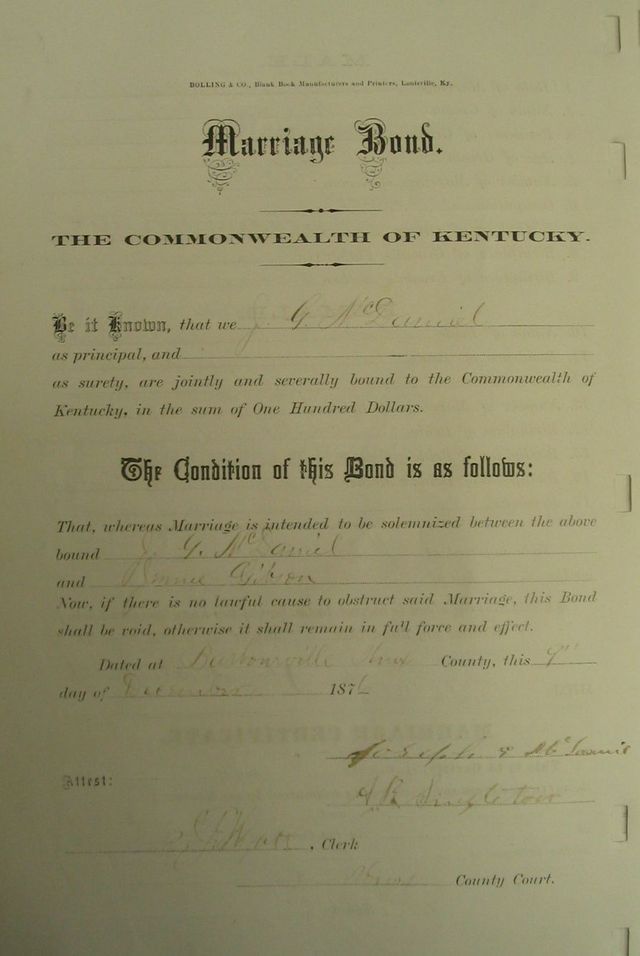 BOLLING & CO., Blank Book Manufacturers and Printers, Louisville, Ky.
Marriage Bond.
THE COMMONWEALTH OF KENTUCKY.
Be it Known, that we J. G. McDaniel
as principal, and
as surety, are jointly and severally bound to the Commonwealth of
Kentucky, in the sum of One Hundred Dollars.
The Condition of this Bond is as follows:
That, whereas Marriage is intended to be solemnized between the above
bound J. G. McDaniel
and Gibson
Now, if there is no lawful cause to obstruct said Marriage, this Bond
shall be void, otherwise it shall remain in full force and effect.
Dated at Burtonville Knox County, this 9th
day of December 1876
Joseph G McDaniel
A B Singleton
Attest:
, Clerk
Knox County Court.